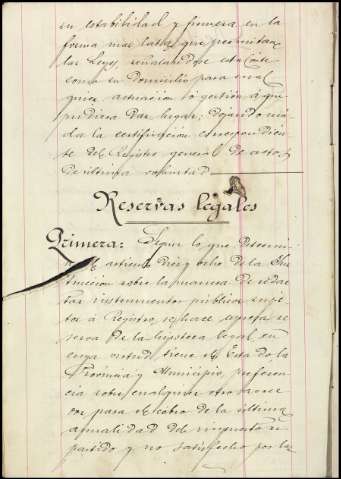 su estabilidad y firmeza en la
forma mas lata que permitan
las Leyes, señalandose esta Corte
como su Domicilio para cual
quier actuacion ó gestión á que
pudiera dar lugar; dejando uni
da la certificación correspondien
te del Registro general de actos
de última voluntad
Reservas legales
Primera: Segun lo que determi
na el articulo diez y ocho de la Ins
trucción sobre la manera de redac
tar instrumentos públicos sujetos
á Registro, se hace expresa re
serva de la hipoteca legal en
cuya virtud tiene el Estado la
Provincia y Municipio, preferen
cia sobre cualquier otro acree
dor para el cobro de la última
anualidad del impuesto re
partido y no satisfecho por las